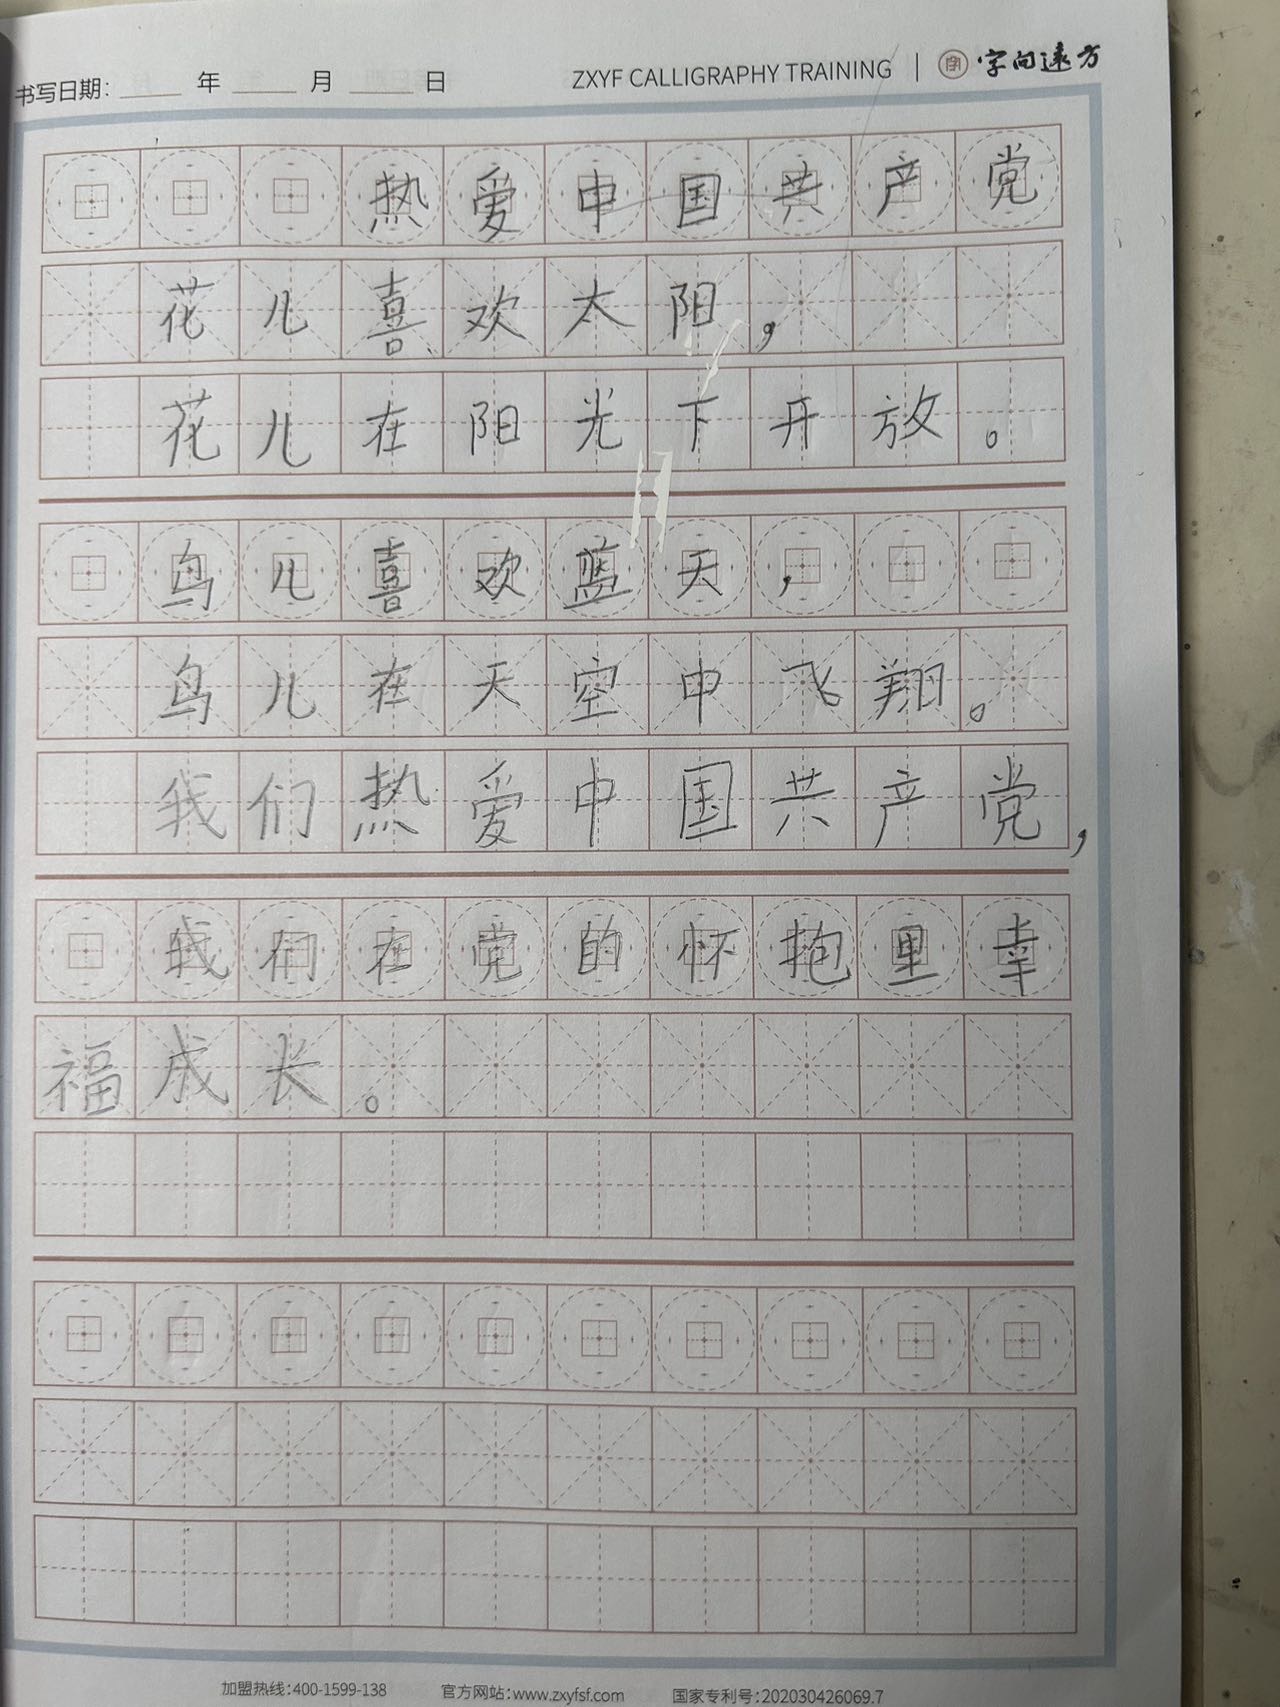 书写日期： 年 月 日 ZXYF CALLIGRAPHY TRAINING | 字向远方
热爱中国共产党
花儿喜欢太阳，
花儿在阳光下开放。
鸟儿喜欢蓝天，
鸟儿在天空中飞翔。
我们热爱中国共产党，
我们在党的怀抱里幸
福成长。
加盟热线：400-1599-138 官方网站：www.zxyfsf.com 国家专利号：202030426069.7